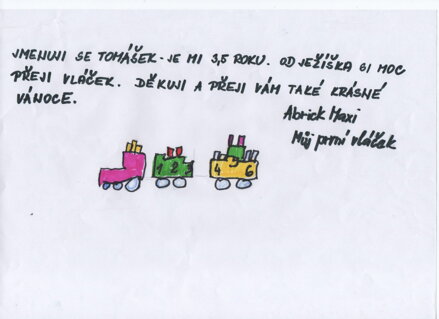 JMENUJI SE TOMÁŠEK - JE MI 3,5 ROKU. OD JEŽÍŠKA SI MOC
PŘEJI VLÁČEK. DĚKUJI A PŘEJI VÁM TAKÉ KRÁSNÉ
VÁNOCE.
Abrick Maxi
Můj první vláček
1 2 3
4 5 6